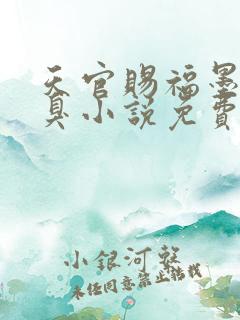 天官赐福墨
真小说免费
小银河整
未经同意禁止转载